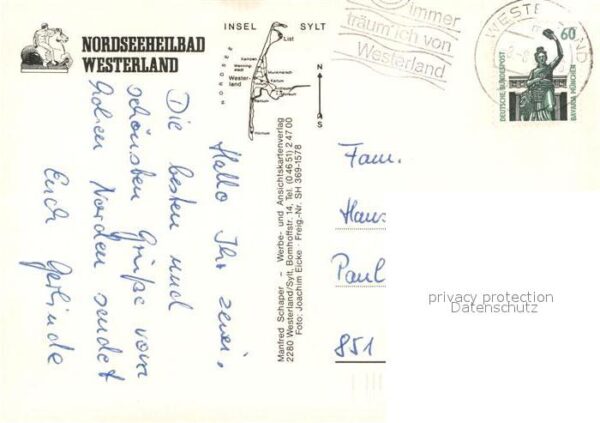 NORDSEEHEILBAD
WESTERLAND
INSEL SYLT
List
Wester-
land
NORDSEE
N
S
immer
träum ich von
Westerland
WESTERLAND
60
DEUTSCHE BUNDESPOST
BAVARIA MÜNCHEN
Hallo Ihr zwei,
Die besten und
schönsten Grüße vom
hohen Norden sendet
Euch Gerlinde
Manfred Schaper – Werbe- und Ansichtskartenverlag
2280 Westerland/Sylt, Bomhoffstr. 14, Tel. (0 46 51) 2 47 00
Foto: Joachim Eicke · Freig.-Nr. SH 369-1578
Fam.
Hans
Paul
851
privacy protection
Datenschutz